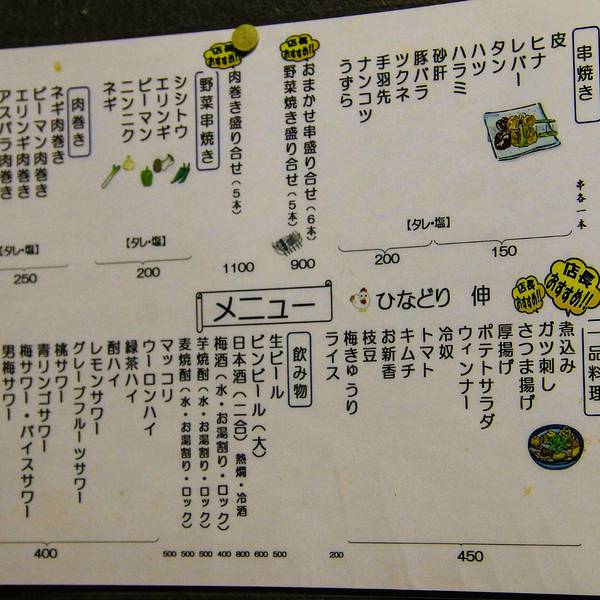 串焼き
皮
ヒナ
レバー
タン
ハツ
ハラミ
砂肝
豚バラ
ツクネ
手羽先
ナンコツ
うずら
串各一本
【タレ・塩】
150
200
店長おすすめ!!
おまかせ串盛り合せ(6本)
野菜焼き盛り合せ(5本)
900
店長おすすめ!!
肉巻き盛り合せ(5本)
1100
野菜串焼き
シシトウ
エリンギ
ピーマン
ニンニク
ネギ
【タレ・塩】
200
肉巻き
ネギ肉巻き
ピーマン肉巻き
エリンギ肉巻き
アスパラ肉巻き
【タレ・塩】
250
メニュー
ひなどり 伸
店長おすすめ!!
店長おすすめ!!
一品料理
煮込み
ガツ刺し
さつま揚げ
厚揚げ
ポテトサラダ
ウィンナー
冷奴
トマト
キムチ
お新香
枝豆
梅きゅうり
ライス
450
200
飲み物
生ビール
ビンビール(大)
日本酒(二合)熱燗・冷酒
梅酒(水・お湯割り・ロック)
芋焼酎(水・お湯割り・ロック)
麦焼酎(水・お湯割り・ロック)
マッコリ
500
600
800
400
500
500
500
ウーロンハイ
緑茶ハイ
酎ハイ
レモンサワー
グレープフルーツサワー
桃サワー
青リンゴサワー
梅サワー・パイスサワー
男梅サワー
400